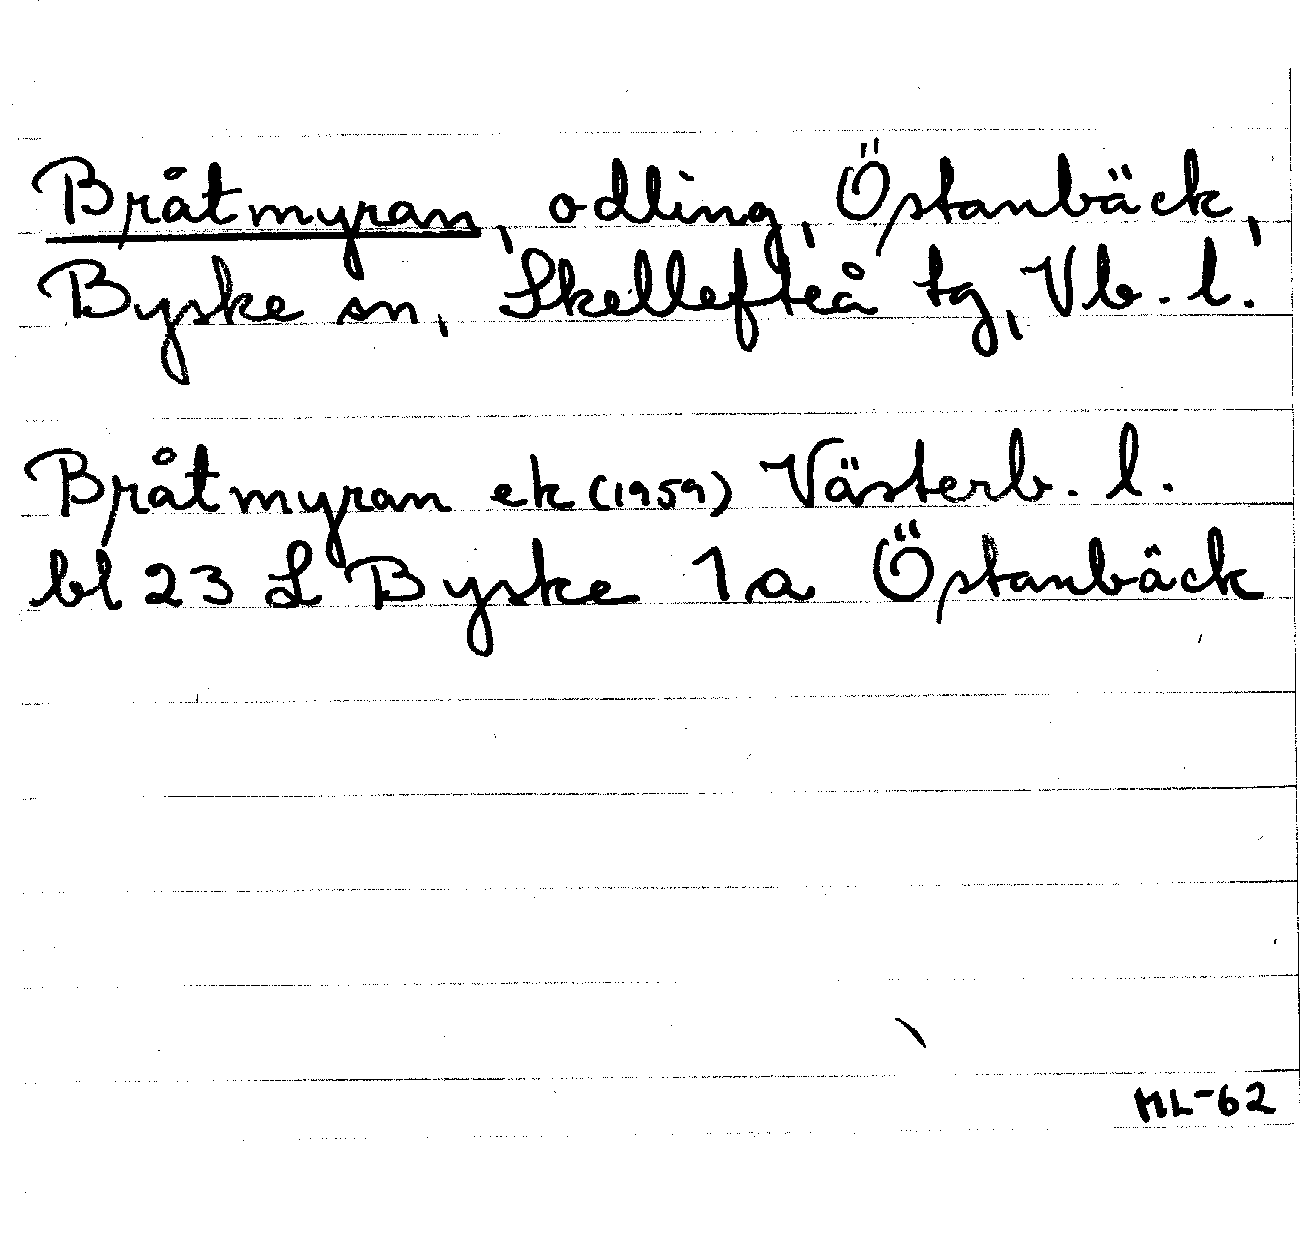 Bråtmyran, odling, Östanbäck,
Byske sn, Skellefteå tg, Vb. l.
Bråtmyran ek (1959) Västerb. l.
bl 23 L Byske 1a Östanbäck
ML-62